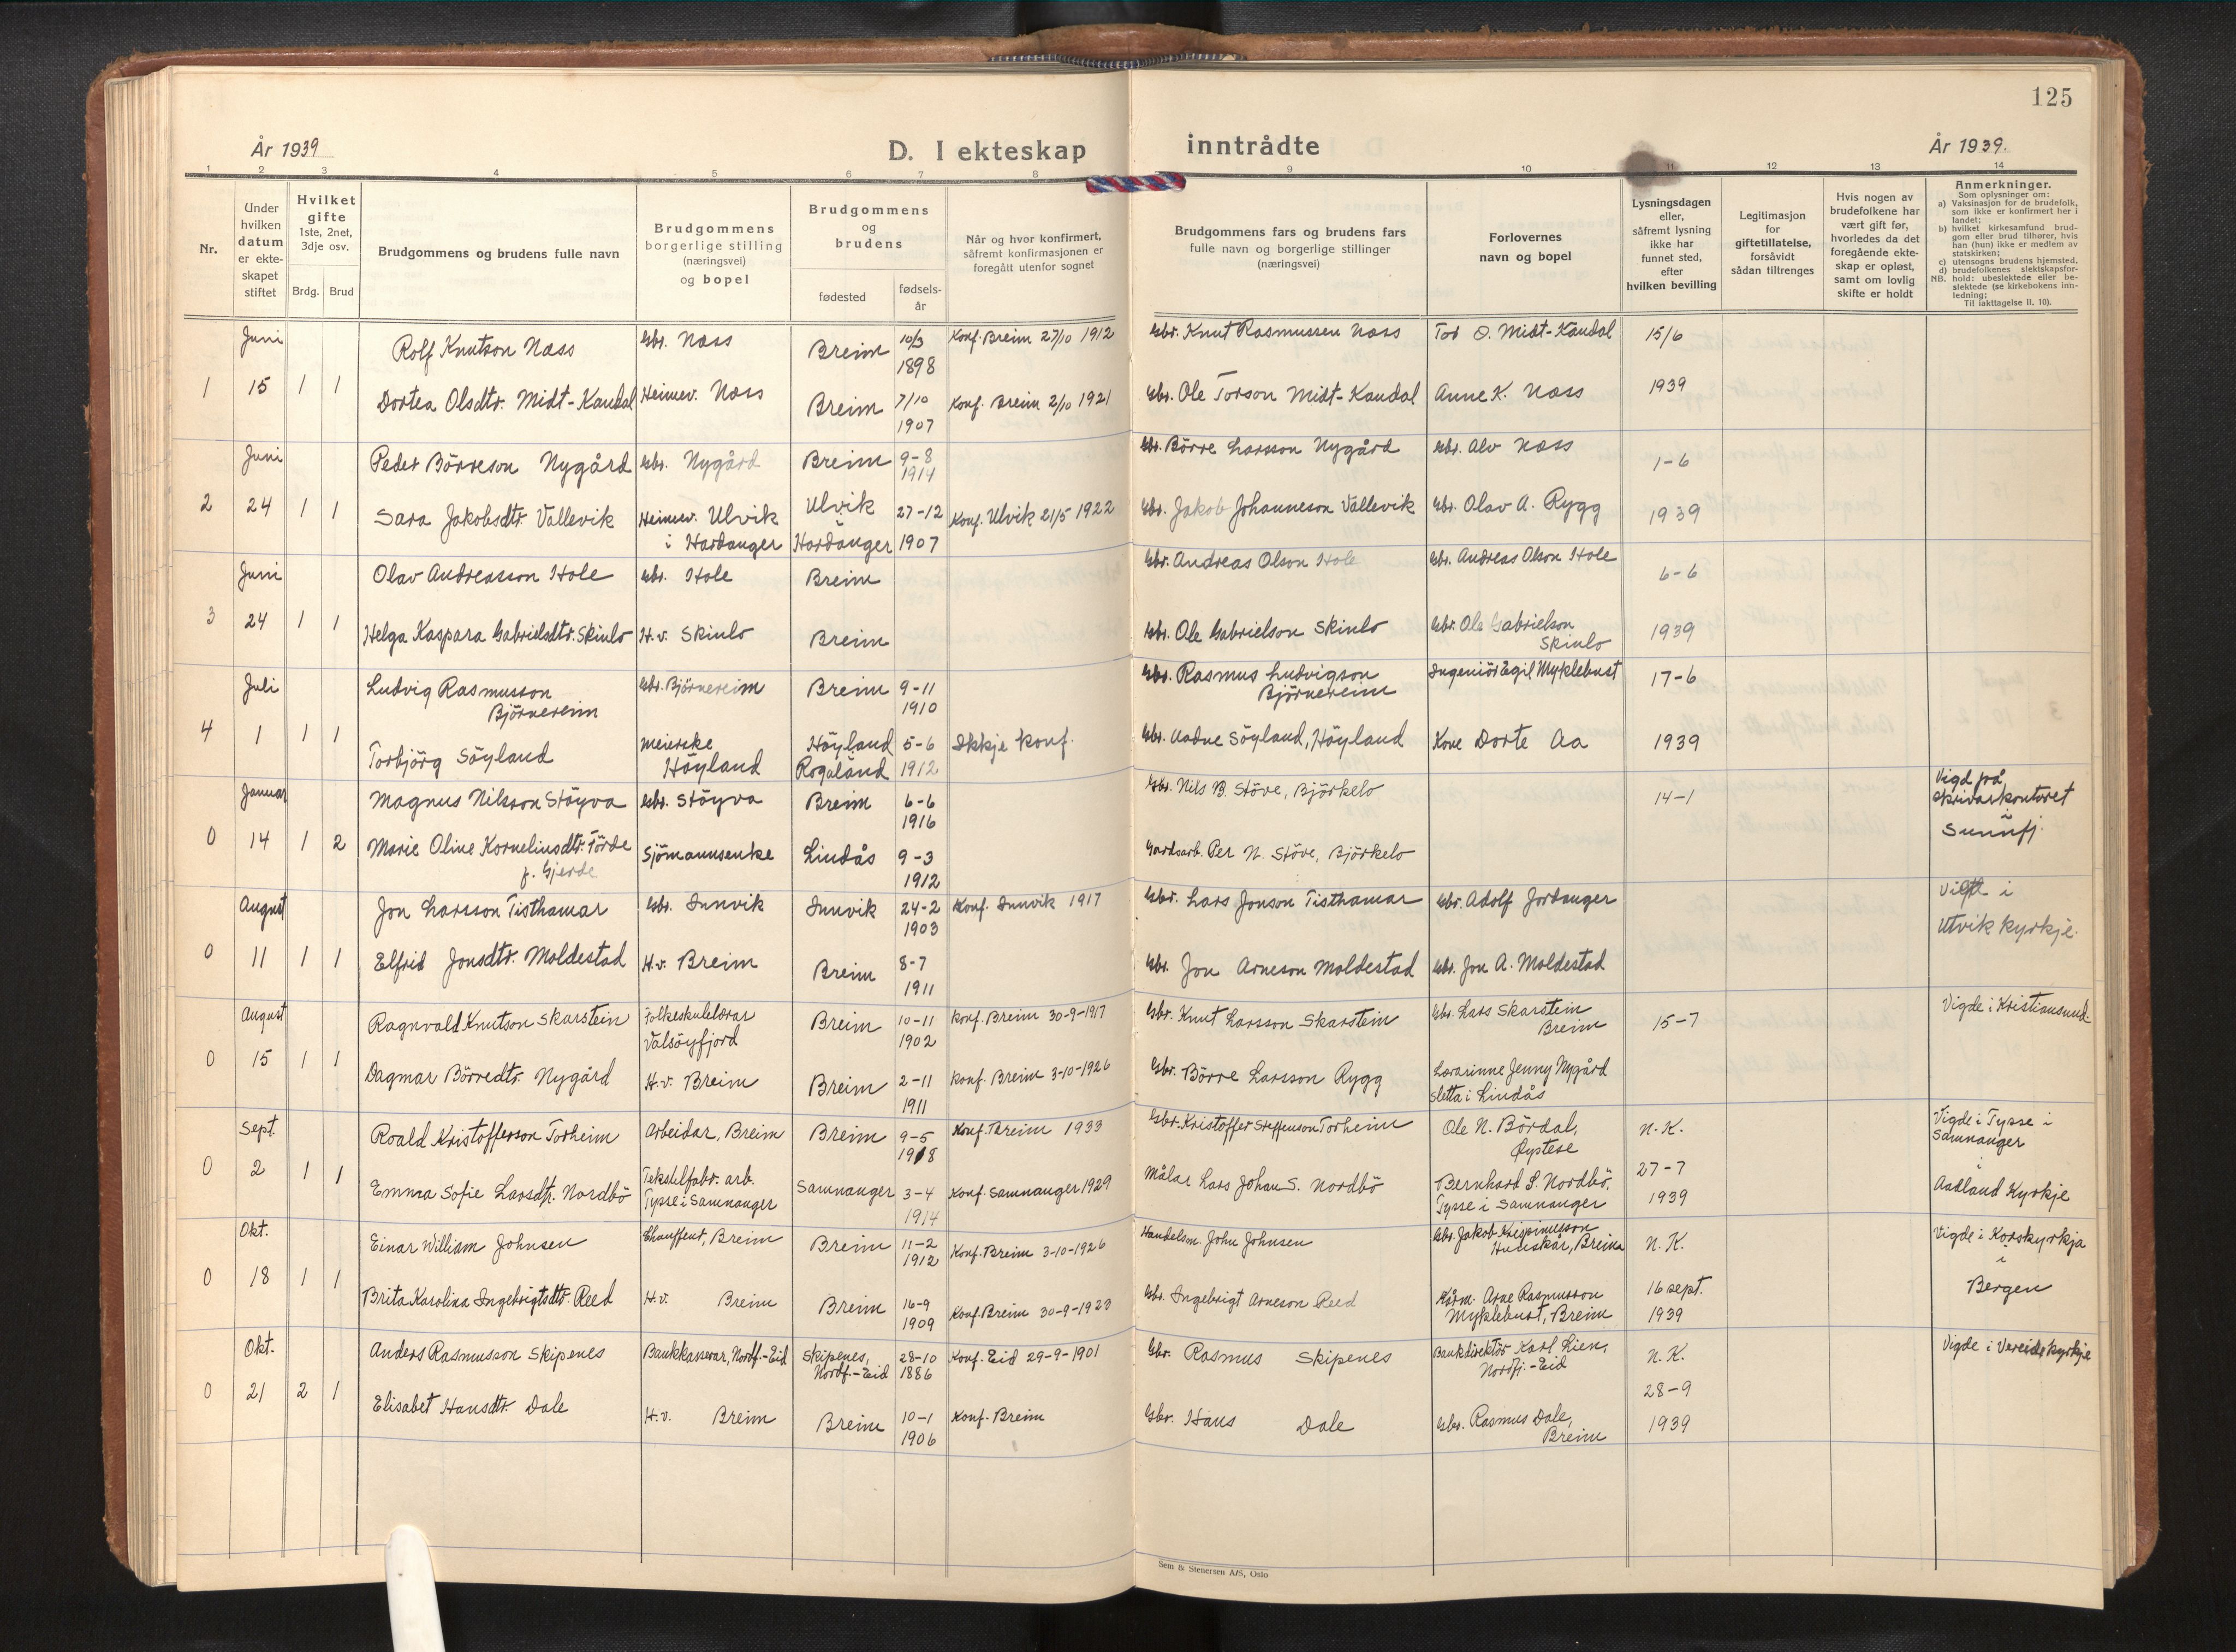 125
År 1939
D. I ekteskap inntrådte
År 1939.
1 2 3 4 5 6 7 8 9 10 11 12 13 14
Nr.
Under hvilken datum er ekte-skapet stiftet
Hvilket gifte 1ste, 2net, 3dje osv.
Brdg. Brud
Brudgommens og brudens fulle navn
Brudgommens borgerlige stilling (næringsvei) og bopel
Brudgommens og brudens
fødested
fødsels-år
Når og hvor konfirmert, såfremt konfirmasjonen er foregått utenfor sognet
Brudgommens fars og brudens fars fulle navn og borgerlige stillinger (næringsvei)
Forlovernes navn og bopel
Lysningsdagen eller, såfremt lysning ikke har funnet sted, efter hvilken bevilling
Legitimasjon for giftetillatelse, forsåvidt sådan tiltrenges
Hvis nogen av brudefolkene har vært gift før, hvorledes da det foregående ekte-skap er opløst, samt om lovlig skifte er holdt
Anmerkninger.
Som oplysninger om:
a) Vaksinasjon for de brudefolk, som ikke er konfirmert her i landet;
b) hvilket kirkesamfund brud-gom eller brud tilhører, hvis han (hun) ikke er medlem av statskirken;
c) utensogns brudens hjemsted.
d) brudefolkenes slektskapsfor-hold: ubeslektede eller be-slektede (se kirkebokens inn-ledning;
NB.
Til iakttagelse II. 10).
Juni Rolf Knutson Næss Gbr. Næss Breim 10/3 1898 Konf. Breim 27/10 1912 Gbr. Knut Rasmussen Næss Tor O. Midt-Kandal 15/6
1 15 1 1 Dortea Olsdtr. Midt-Kandal Heimev. Næss Breim 7/10 1907 Konf. Breim 2/10 1921 Gbr. Ole Torson Midt-Kandal Anne K. Næss 1939
Juni Peder Börreson Nygård Gbr. Nygård Breim 9-8 1914 Gbr. Börre Larsson Nygård Gbr. Alv Næss 1-6
2 24 1 1 Sara Jakobsdtr. Vallevik Heimev. Ulvik i Hardanger Ulvik i Hardanger 27-12 1907 Konf. Ulvik 21/5 1922 Gbr. Jakob Johanneson Vallevik Gbr. Olav A. Rygg 1939
Juni Olav Andreasson Hole Gbr. Hole Breim Gbr. Andreas Olson Hole Gbr. Andreas Olson Hole 6-6
3 24 1 1 Helga Kaspara Gabrielsdtr. Skinlo H.v. Skinlo Breim Gbr. Ole Gabrielson Skinlo Gbr. Ole Gabrielson Skinlo 1939
Juli Ludvig Rasmusson Björnereim Gbr. Björnereim Breim 9-11 1910 Gbr. Rasmus Ludvigson Björnereim Ingeniör Egil Myklebust 17-6
4 1 1 1 Torbjörg Söyland Meierske Höyland Höyland Rogaland 5-6 1912 Ikkje konf. Gbr. Aadne Söyland, Höyland Kone Dorte Aa 1939
Januar Magnus Nilsson Stöyva Gbr. Stöyva Breim 6-6 1916 Gbr. Nils B. Stöve, Björkelo 14-1 Vigd på skrivarkontoret i Sunnfj.
0 14 1 2 Marie Oline Kornelinsdtr. Förde f. Gjerde Sjömannsenke Lindås 9-3 1912 Gardsarb. Per N. Stöve, Björkelo
August Jon Larsson Tisthamar Gbr. Innvik Innvik 24-2 1903 Konf. Innvik 1917 Gbr. Lars Jonson Tisthamar Gbr. Adolf Jordanger Vigde i Utvik kyrkje.
0 11 1 1 Elfrid Jonsdtr. Moldestad H.v. Breim Breim 8-7 1911 Gbr. Jon Arneson Moldestad Gbr. Jon A. Moldestad
August Ragnvald Knutson Skarstein Folkeskulelærar Valsöyfjord Breim 10-11 1902 Konf. Breim 30-9-1917 Gbr. Knut Larsson Skarstein Gbr. Lars Skarstein Breim 15-7 Vigde i Kristiansund.
0 15 1 1 Dagmar Börredtr. Nygård H.v. Breim Breim 2-11 1911 Konf. Breim 3-10-1926 Gbr. Börre Larsson Rygg Lærarinne Jenny Nygård Sletta i Lindås
Sept. Roald Kristofferson Torheim Arbeidar, Breim Breim 9-5 1918 Konf. Breim 1933 Gbr. Kristoffer Steffenson Torheim Ole N. Bördal, Øystese N.K. Vigde i Tysse i Samnanger
0 2 1 1 Emma Sofie Larsdtr. Nordbö Tekstilfabr. arb. Tysse i Samnanger Samnanger 3-4 1914 Konf. Samnanger 1929 Målar Lars Johan S. Nordbö Bernhard S. Nordbö, Tysse i Samnanger 27-7 1939 i Aadland Kyrkje
Okt. Einar William Johnsen Chauffeur, Breim Breim 11-2 1912 Konf. Breim 3-10-1926 Handelsm. John Johnsen Gbr. Jakob Huneskår, Breim N.K. Vigde i Korskyrkja i Bergen
0 18 1 1 Brita Karolina Ingebrigtsdtr. Reed H.v. Breim Breim 16-9 1909 Konf. Breim 30-9-1923 Gbr. Ingebrigt Arneson Reed Arne Rasmusson Myklebust, Breim 16 sept. 1939
Okt. Anders Rasmusson Skipenes Bankkasserar, Nordf.-Eid Skipenes, Nordf.-Eid 28-10 1886 Konf. Eid 29-9-1901 Gbr. Rasmus Skipenes Bankdirektör Karl Lien, Nordfj.-Eid N.K. Vigde i Vereide kyrkje
0 21 2 1 Elisabet Hansdtr. Dale H.v. Breim Breim 10-1 1906 Konf. Breim Gbr. Hans Dale Gbr. Rasmus Dale, Breim 28-9 1939
Sem & Stenersen A/S, Oslo